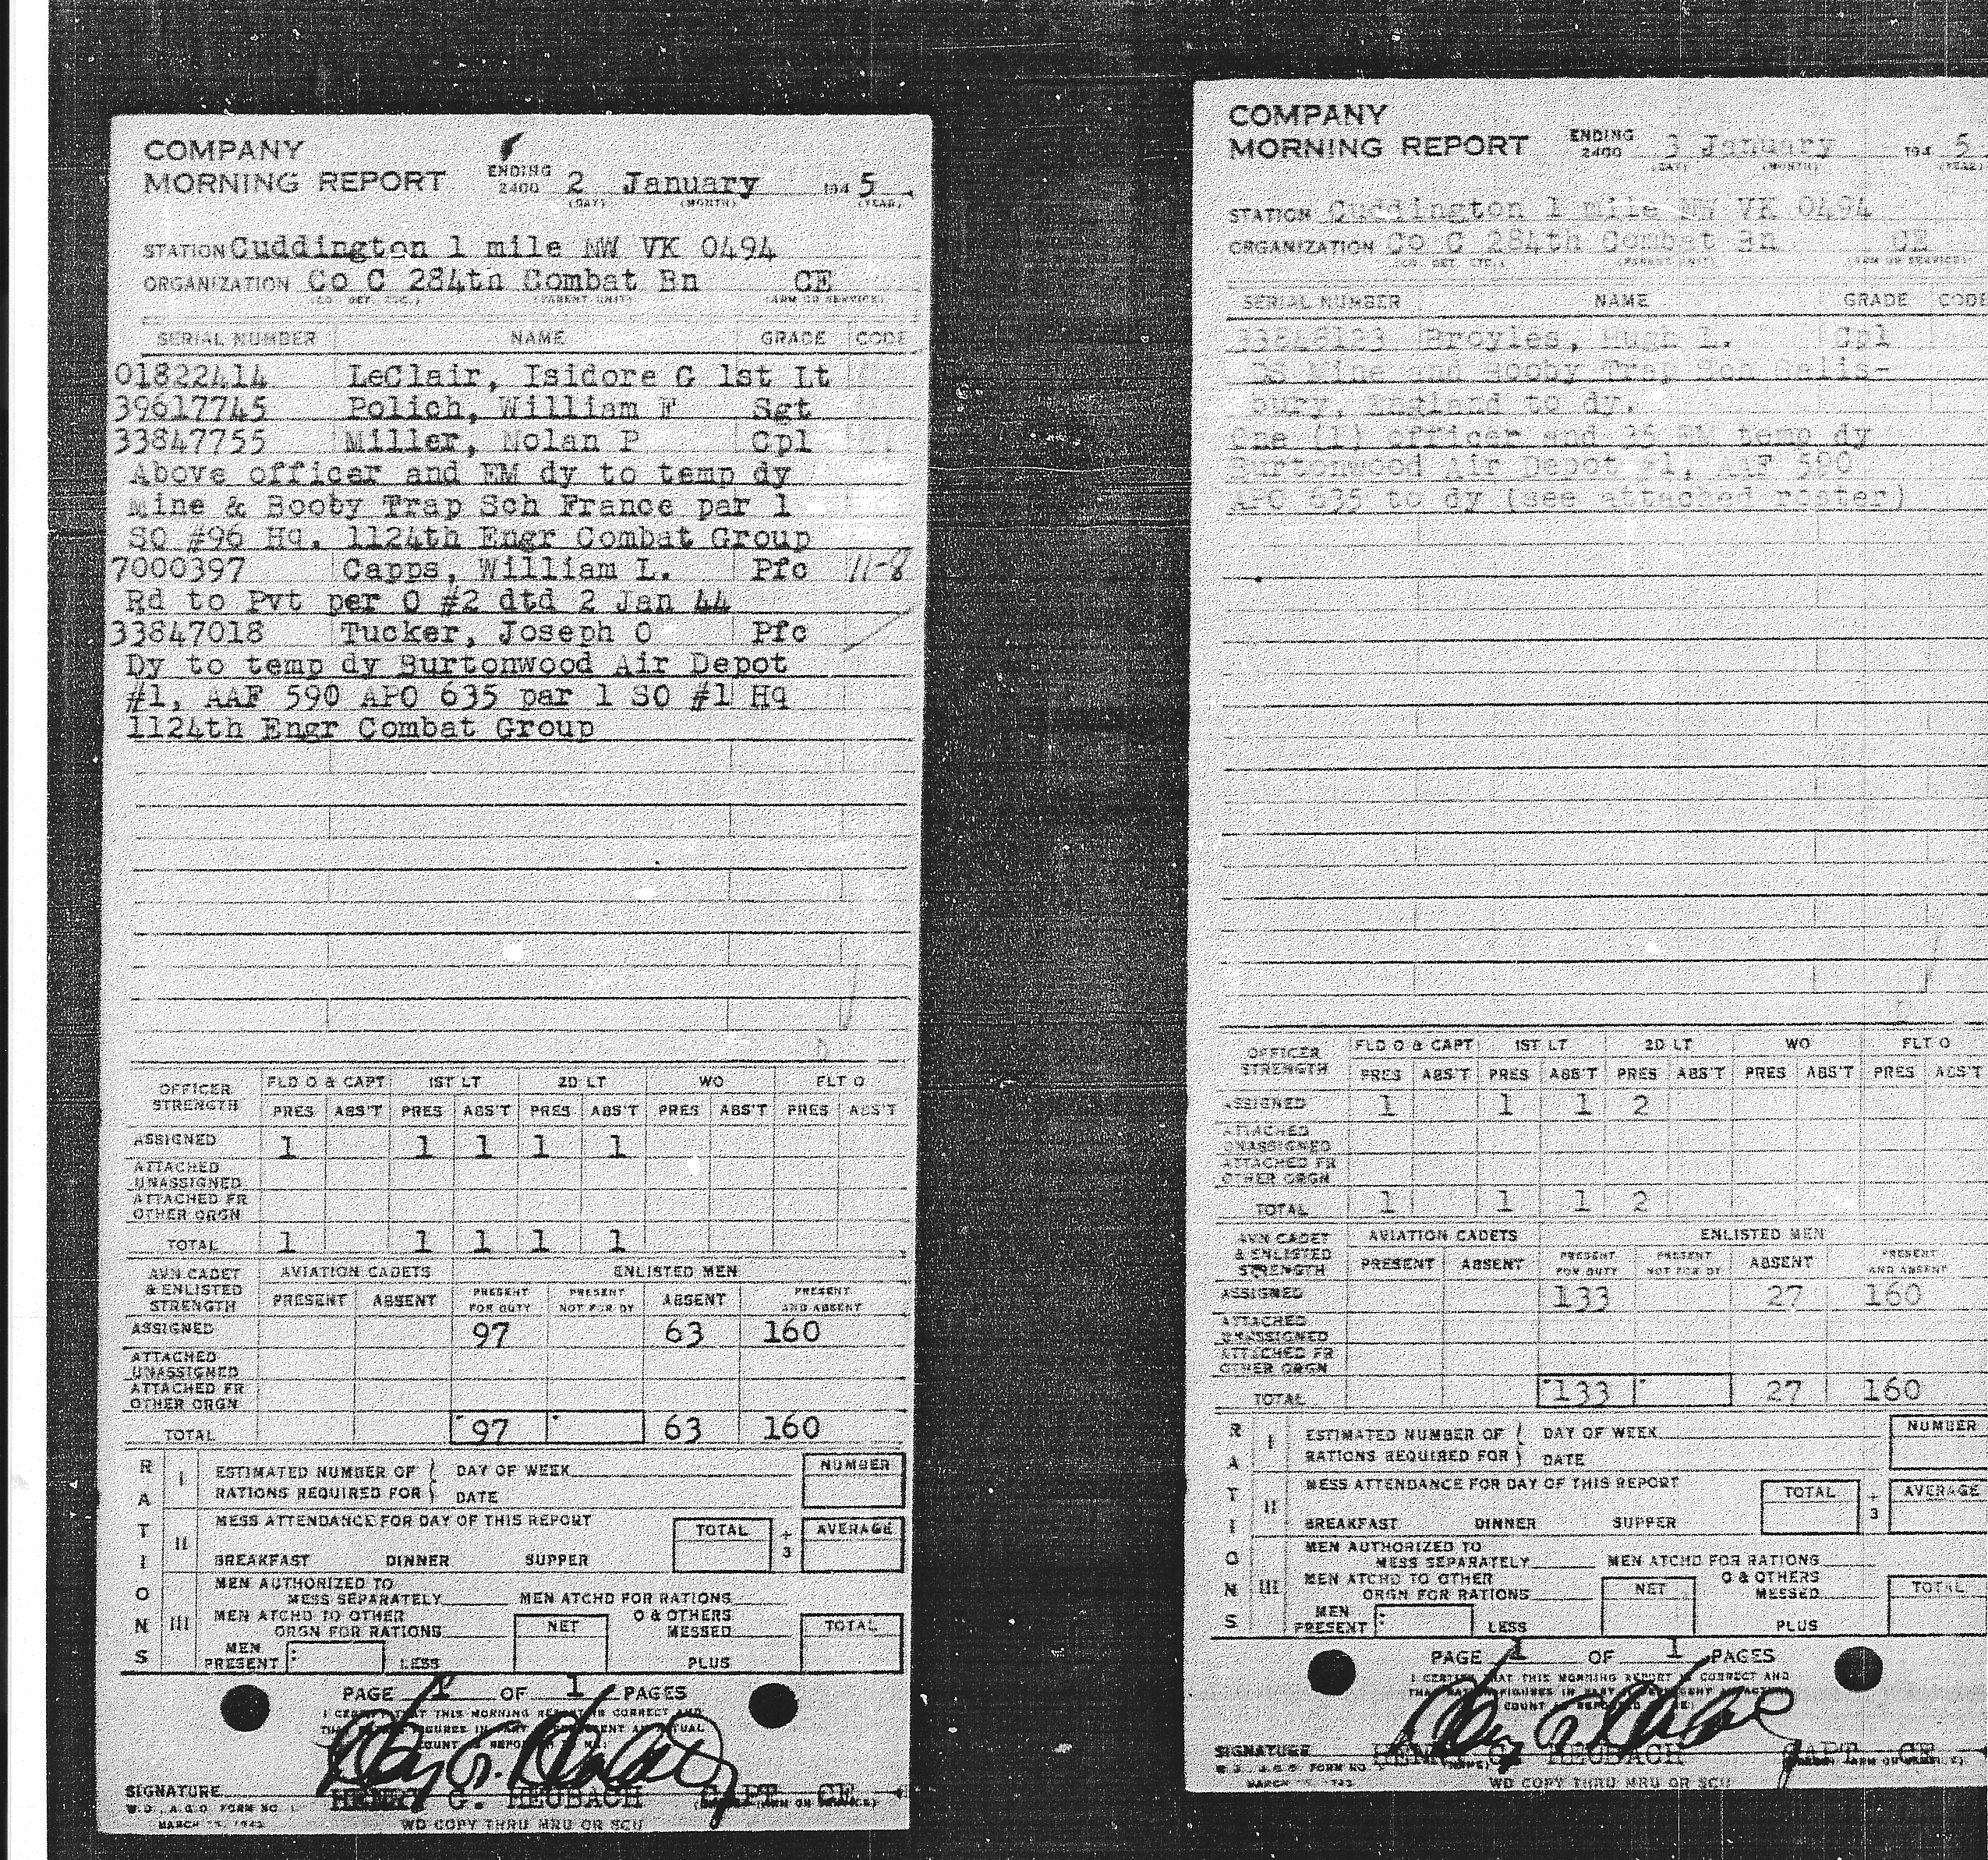 COMPANY
MORNING REPORT ENDING 2400 2 January 194 5
(DAY) (MONTH) (YEAR)
STATION Cuddington 1 mile NW VK 0494
ORGANIZATION Co C 284th Combat Bn CE
(CO. DET. ETC.) (PARENT UNIT) (ARM OR SERVICE)
SERIAL NUMBER NAME GRADE CODE
01822414 LeClair, Isidore G 1st Lt
39617745 Polich, William F Sgt
33847755 Miller, Nolan P Cpl
Above officer and EM dy to temp dy
Mine & Booby Trap Sch France par 1
SO #96 Hq. 1124th Engr Combat Group
7000397 Capps, William L. Pfc 11-8
Rd to Pvt per O #2 dtd 2 Jan 44
33847018 Tucker, Joseph O Pfc
Dy to temp dy Burtonwood Air Depot
#1, AAF 590 APO 635 par 1 SO #1 Hq
1124th Engr Combat Group
OFFICER STRENGTH FLD O & CAPT 1ST LT 2D LT WO FLT O
PRES ABS'T PRES ABS'T PRES ABS'T PRES ABS'T PRES ABS'T
ASSIGNED 1 1 1 1 1
ATTACHED UNASSIGNED
ATTACHED FR OTHER ORGN
TOTAL 1 1 1 1 1
AVN CADET & ENLISTED STRENGTH AVIATION CADETS ENLISTED MEN
PRESENT ABSENT PRESENT FOR DUTY PRESENT NOT FOR DY ABSENT PRESENT AND ABSENT
ASSIGNED 97 63 160
ATTACHED UNASSIGNED
ATTACHED FR OTHER ORGN
TOTAL 97 63 160
RATIONS
I ESTIMATED NUMBER OF RATIONS REQUIRED FOR DAY OF WEEK DATE NUMBER
II MESS ATTENDANCE FOR DAY OF THIS REPORT
BREAKFAST DINNER SUPPER TOTAL ÷ 3 AVERAGE
III MEN AUTHORIZED TO MESS SEPARATELY MEN ATCHD FOR RATIONS
MEN ATCHD TO OTHER ORGN FOR RATIONS NET O & OTHERS MESSED TOTAL
MEN PRESENT LESS PLUS
PAGE 1 OF 1 PAGES
I CERTIFY THAT THIS MORNING REPORT IS CORRECT AND
SIGNATURE HENRY G. HEUBACH CAPT CE
W.D., A.G.O. FORM NO. 1
WD COPY THRU MRU OR SCU
COMPANY
MORNING REPORT ENDING 2400 3 January 194 5
(DAY) (MONTH) (YEAR)
STATION Cuddington 1 mile NW VK 0494
ORGANIZATION Co C 284th Combat Bn CE
(CO. DET. ETC.) (PARENT UNIT) (ARM OR SERVICE)
SERIAL NUMBER NAME GRADE CODE
33846123 Broyles, Hugh L. Cpl
DS Mine and Booby Trap Sch Salis-
bury, England to dy.
One (1) officer and 35 EM temp dy
Burtonwood Air Depot #1, AAF 590
APO 635 to dy (see attached roster)
OFFICER STRENGTH FLD O & CAPT 1ST LT 2D LT WO FLT O
PRES ABS'T PRES ABS'T PRES ABS'T PRES ABS'T PRES ABS'T
ASSIGNED 1 1 1 2
ATTACHED UNASSIGNED
ATTACHED FR OTHER ORGN
TOTAL 1 1 1 2
AVN CADET & ENLISTED STRENGTH AVIATION CADETS ENLISTED MEN
PRESENT ABSENT PRESENT FOR DUTY PRESENT NOT FOR DY ABSENT PRESENT AND ABSENT
ASSIGNED 133 27 160
ATTACHED UNASSIGNED
ATTACHED FR OTHER ORGN
TOTAL 133 27 160
RATIONS
I ESTIMATED NUMBER OF RATIONS REQUIRED FOR DAY OF WEEK DATE NUMBER
II MESS ATTENDANCE FOR DAY OF THIS REPORT
BREAKFAST DINNER SUPPER TOTAL ÷ 3 AVERAGE
III MEN AUTHORIZED TO MESS SEPARATELY MEN ATCHD FOR RATIONS
MEN ATCHD TO OTHER ORGN FOR RATIONS NET O & OTHERS MESSED TOTAL
MEN PRESENT LESS PLUS
PAGE 1 OF 1 PAGES
I CERTIFY THAT THIS MORNING REPORT IS CORRECT AND
SIGNATURE HENRY G. HEUBACH CAPT CE
W.D., A.G.O. FORM NO. 1
WD COPY THRU MRU OR SCU